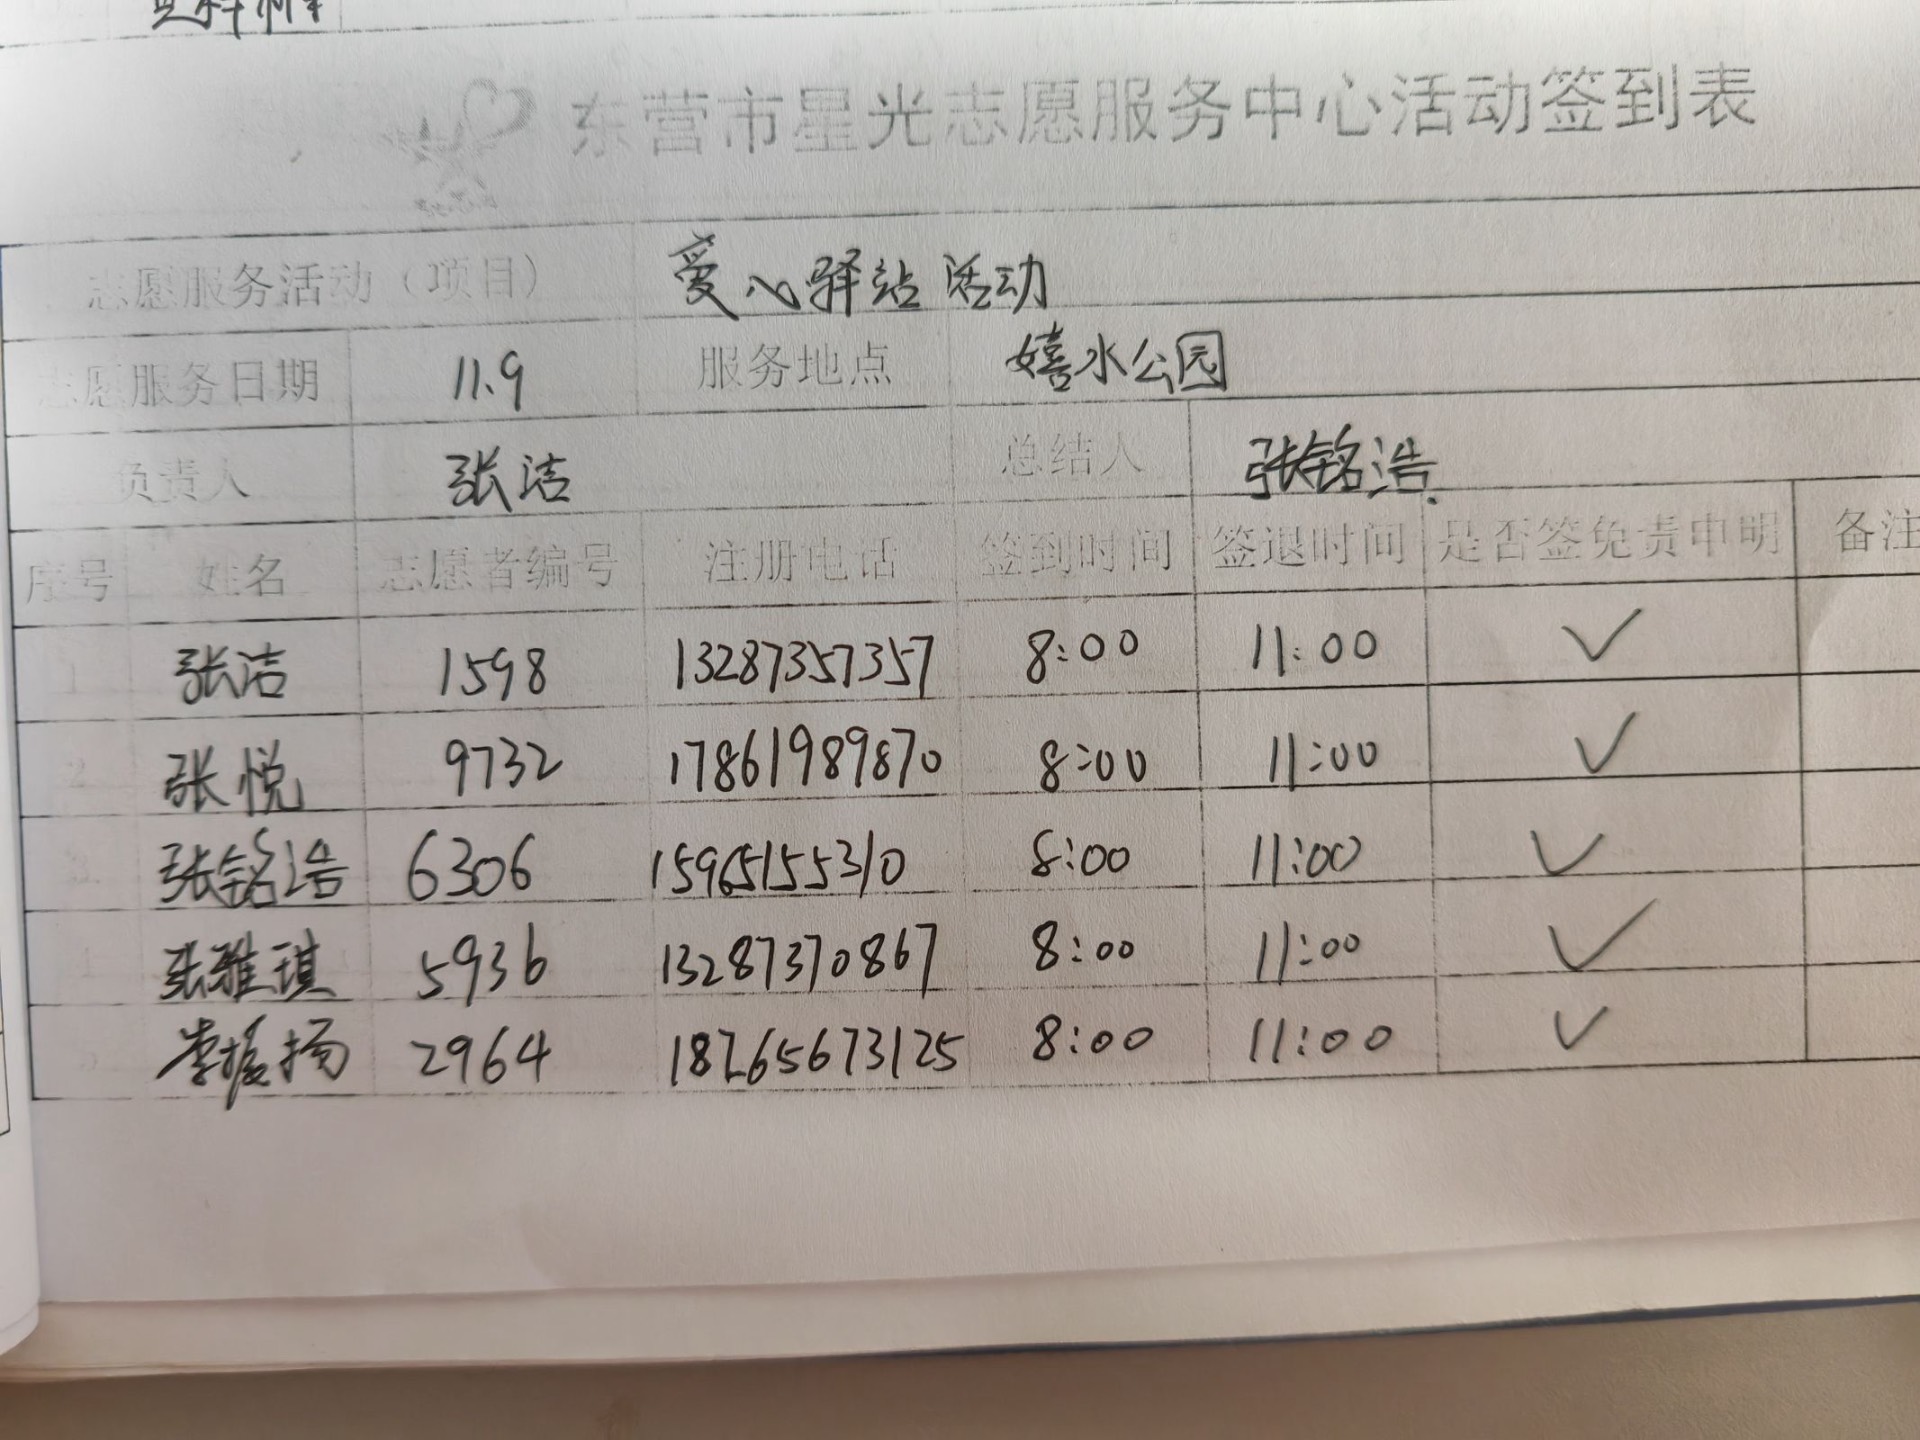 东营市星光志愿服务中心活动签到表
志愿服务活动（项目） 爱心驿站活动
志愿服务日期 11.9 服务地点 嬉水公园
负责人 张洁 总结人 张铭浩
序号 姓名 志愿者编号 注册电话 签到时间 签退时间 是否签免责申明 备注
1 张洁 1598 13287357357 8:00 11:00 ✓
2 张悦 9732 17861989870 8:00 11:00 ✓
3 张铭浩 6306 15965155310 8:00 11:00 ✓
张雅琪 5936 13287370867 8:00 11:00 ✓
李媛扬 2964 18765673125 8:00 11:00 ✓